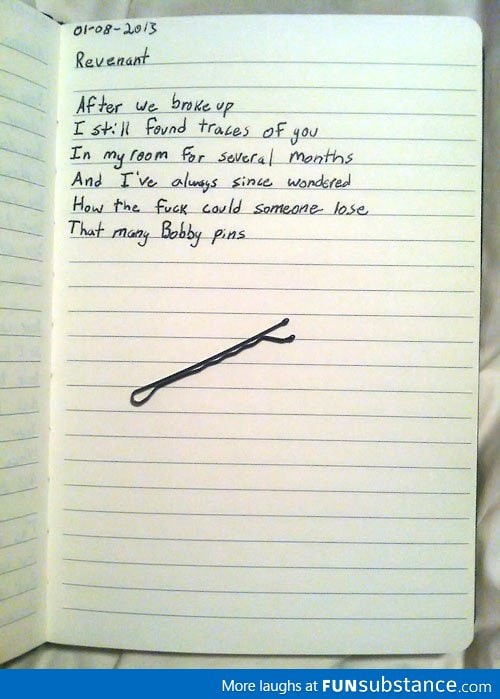 01-08-2013
Revenant
After we broke up
I still found traces of you
In my room for several months
And I've always since wondered
How the fuck could someone lose
That many Bobby pins
More laughs at FUNsubstance.com